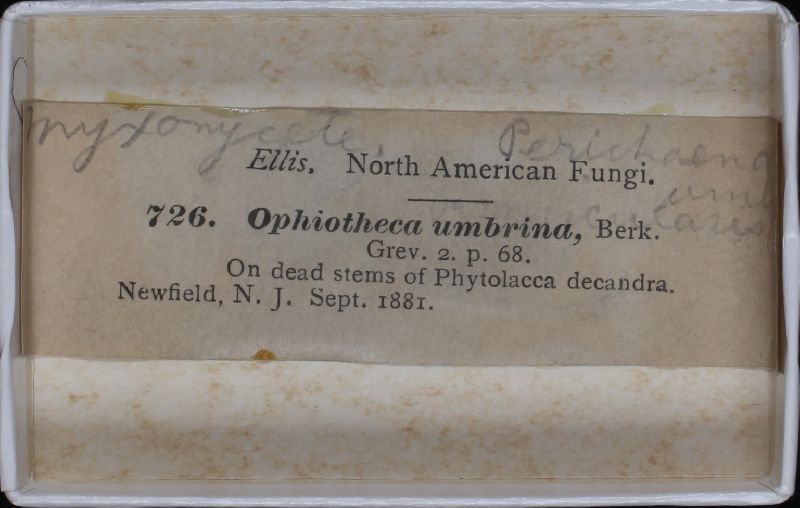 Myxomycete.
Perichaena
Ellis. North American Fungi.
726. Ophiotheca umbrina, Berk.
Grev. 2. p. 68.
On dead stems of Phytolacca decandra.
Newfield, N. J. Sept. 1881.